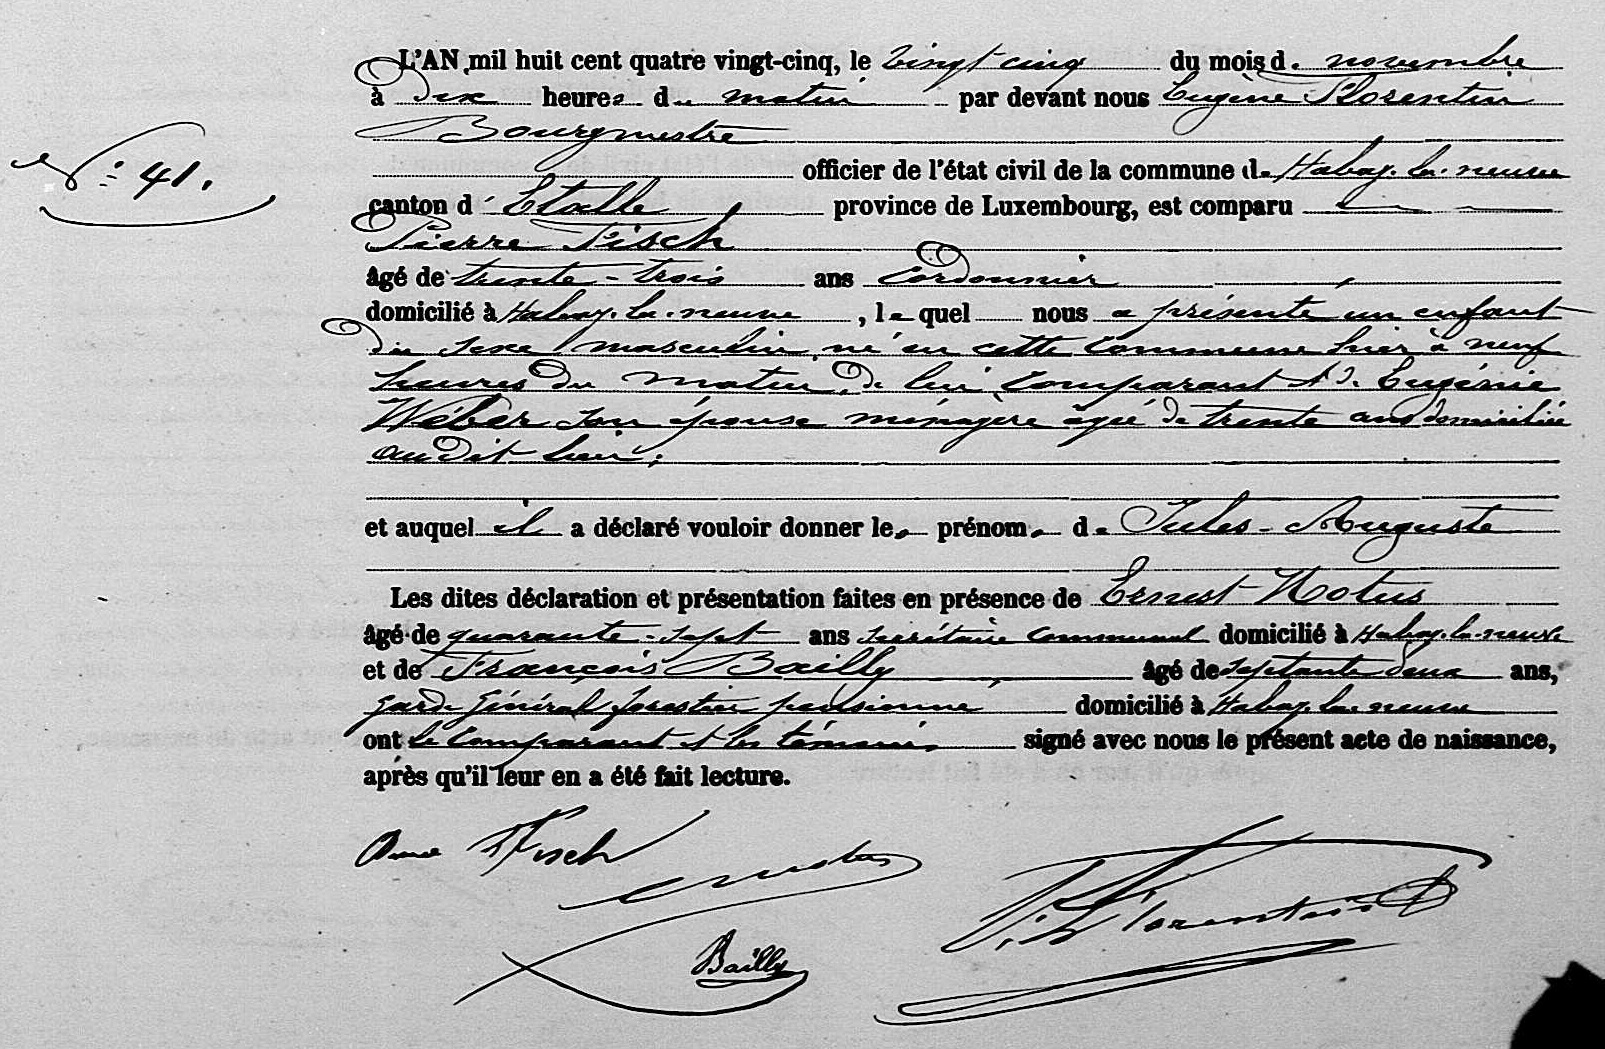 L'AN mil huit cent quatre vingt-cinq, le vingt cinq du mois de novembre
à dix heures du matin par devant nous Eugène Florentin
Bourgmestre
N° 41.
officier de l'état civil de la commune de Habay-la-neuve
canton d'Etalle province de Luxembourg, est comparu
Pierre Fisch
âgé de trente-trois ans cordonnier
domicilié à Habay-la-neuve, lequel nous a présenté un enfant
du sexe masculin, né en cette commune hier à neuf
heures du matin, de lui comparant et de Eugénie
Wéber son épouse ménagère âgée de trente ans domiciliée
au dit lieu;
et auquel il a déclaré vouloir donner les prénoms de Jules-Auguste
Les dites déclaration et présentation faites en présence de Ernest Notus
âgé de quarante-sept ans secrétaire communal domicilié à Habay-la-neuve
et de François Bailly âgé de septante deux ans,
garde général forestier pensionné domicilié à Habay-la-neuve
ont le comparant et les témoins signé avec nous le présent acte de naissance,
après qu'il leur en a été fait lecture.
Fisch
Bailly
Florentin